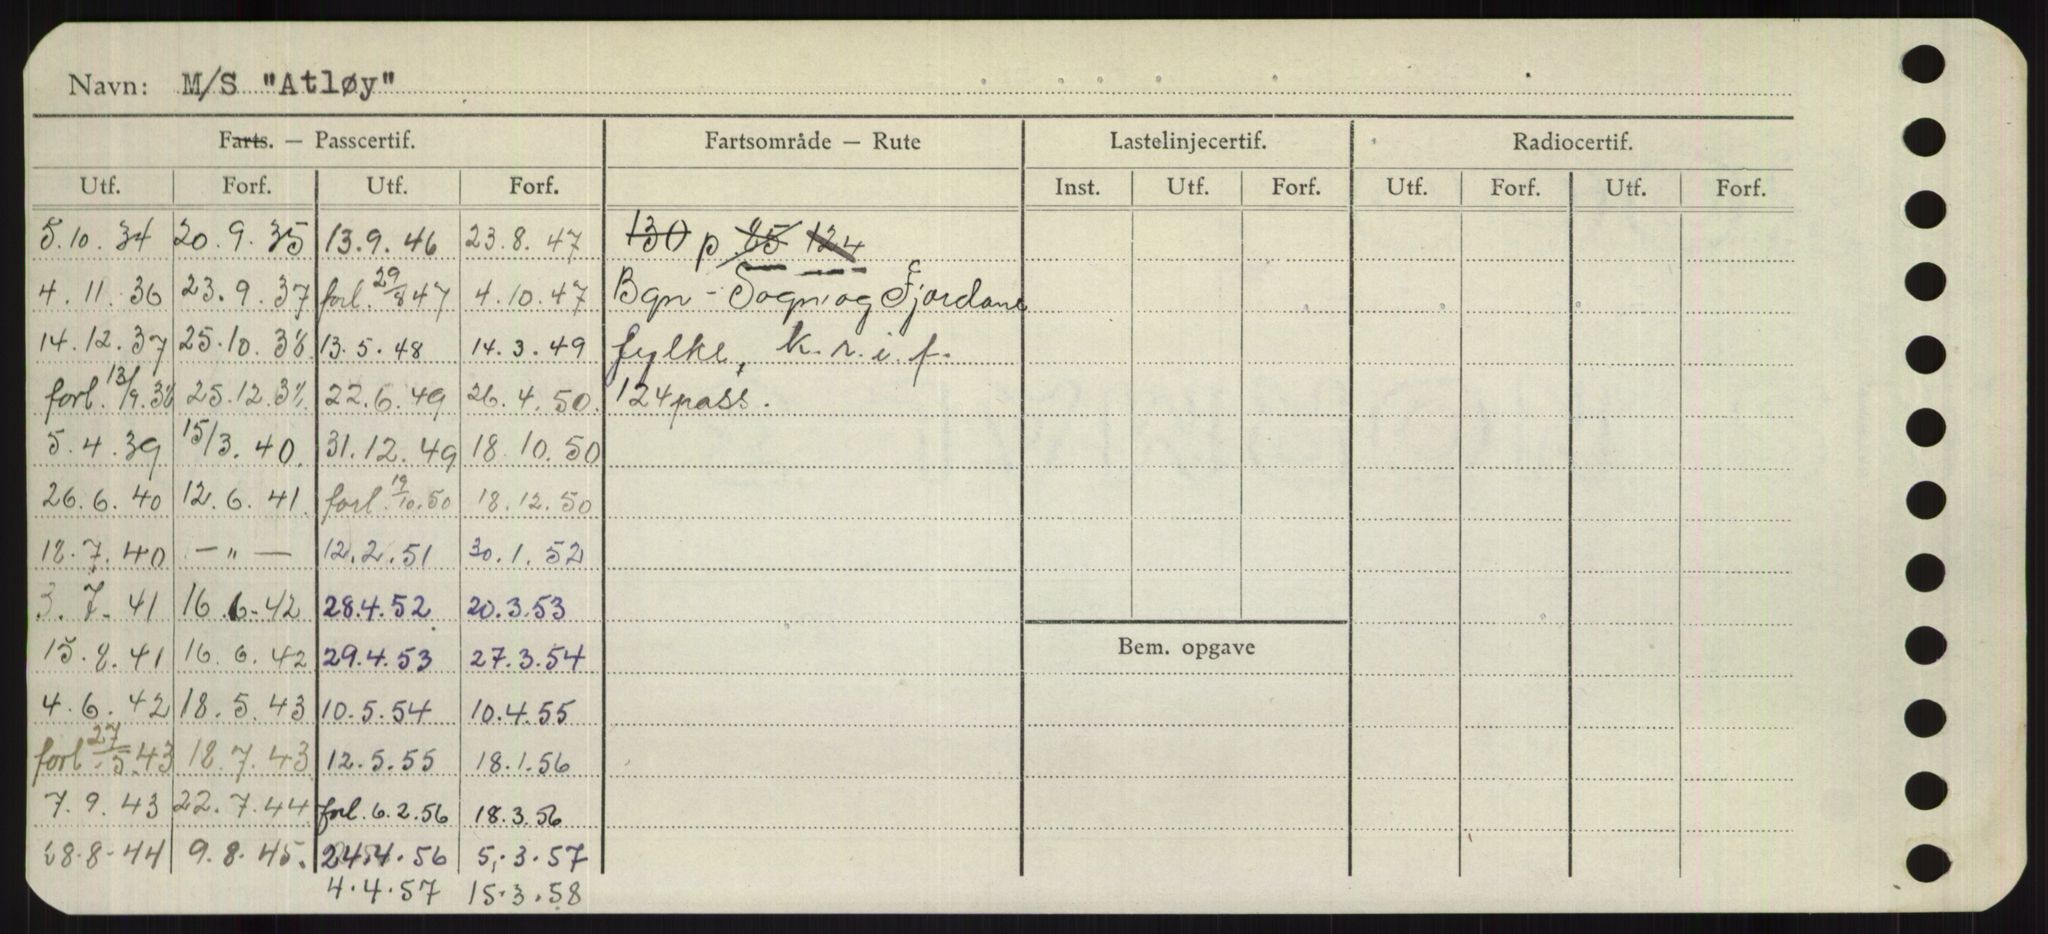 Navn: M/S "Atløy"
Farts. — Passcertif. Fartsområde — Rute Lastelinjecertif. Radiocertif.
Utf. Forf. Utf. Forf. Inst. Utf. Forf. Utf. Forf. Utf. Forf.
5.10.34 20.9.35 13.9.46 23.8.47 130 p 85 124
4.11.36 23.9.37 forl. 29/8 47 4.10.47 Bgn - Sogn og Fjordane
14.12.37 25.10.38 13.5.48 14.3.49 fylke, k.r.i.f.
forl. 13/9.38 25.12.38 22.6.49 26.4.50. 124 pass.
5.4.39 15/3.40. 31.12.49 18.10.50
26.6.40 12.6.41. forl. 19/10.50 18.12.50
18.7.40 — " — 12.2.51 30.1.52
3.7.41 16.6.42 28.4.52 20.3.53
15.8.41 16.6.42 29.4.53 27.3.54
Bem. opgave
4.6.42 18.5.43 10.5.54 10.4.55
forl 27/5.43 18.7.43 12.5.55 18.1.56
7.9.43 22.7.44 forl. 6.2.56 18.3.56
28.8.44 9.8.45. 24.4.56 5.3.57
4.4.57 15.3.58